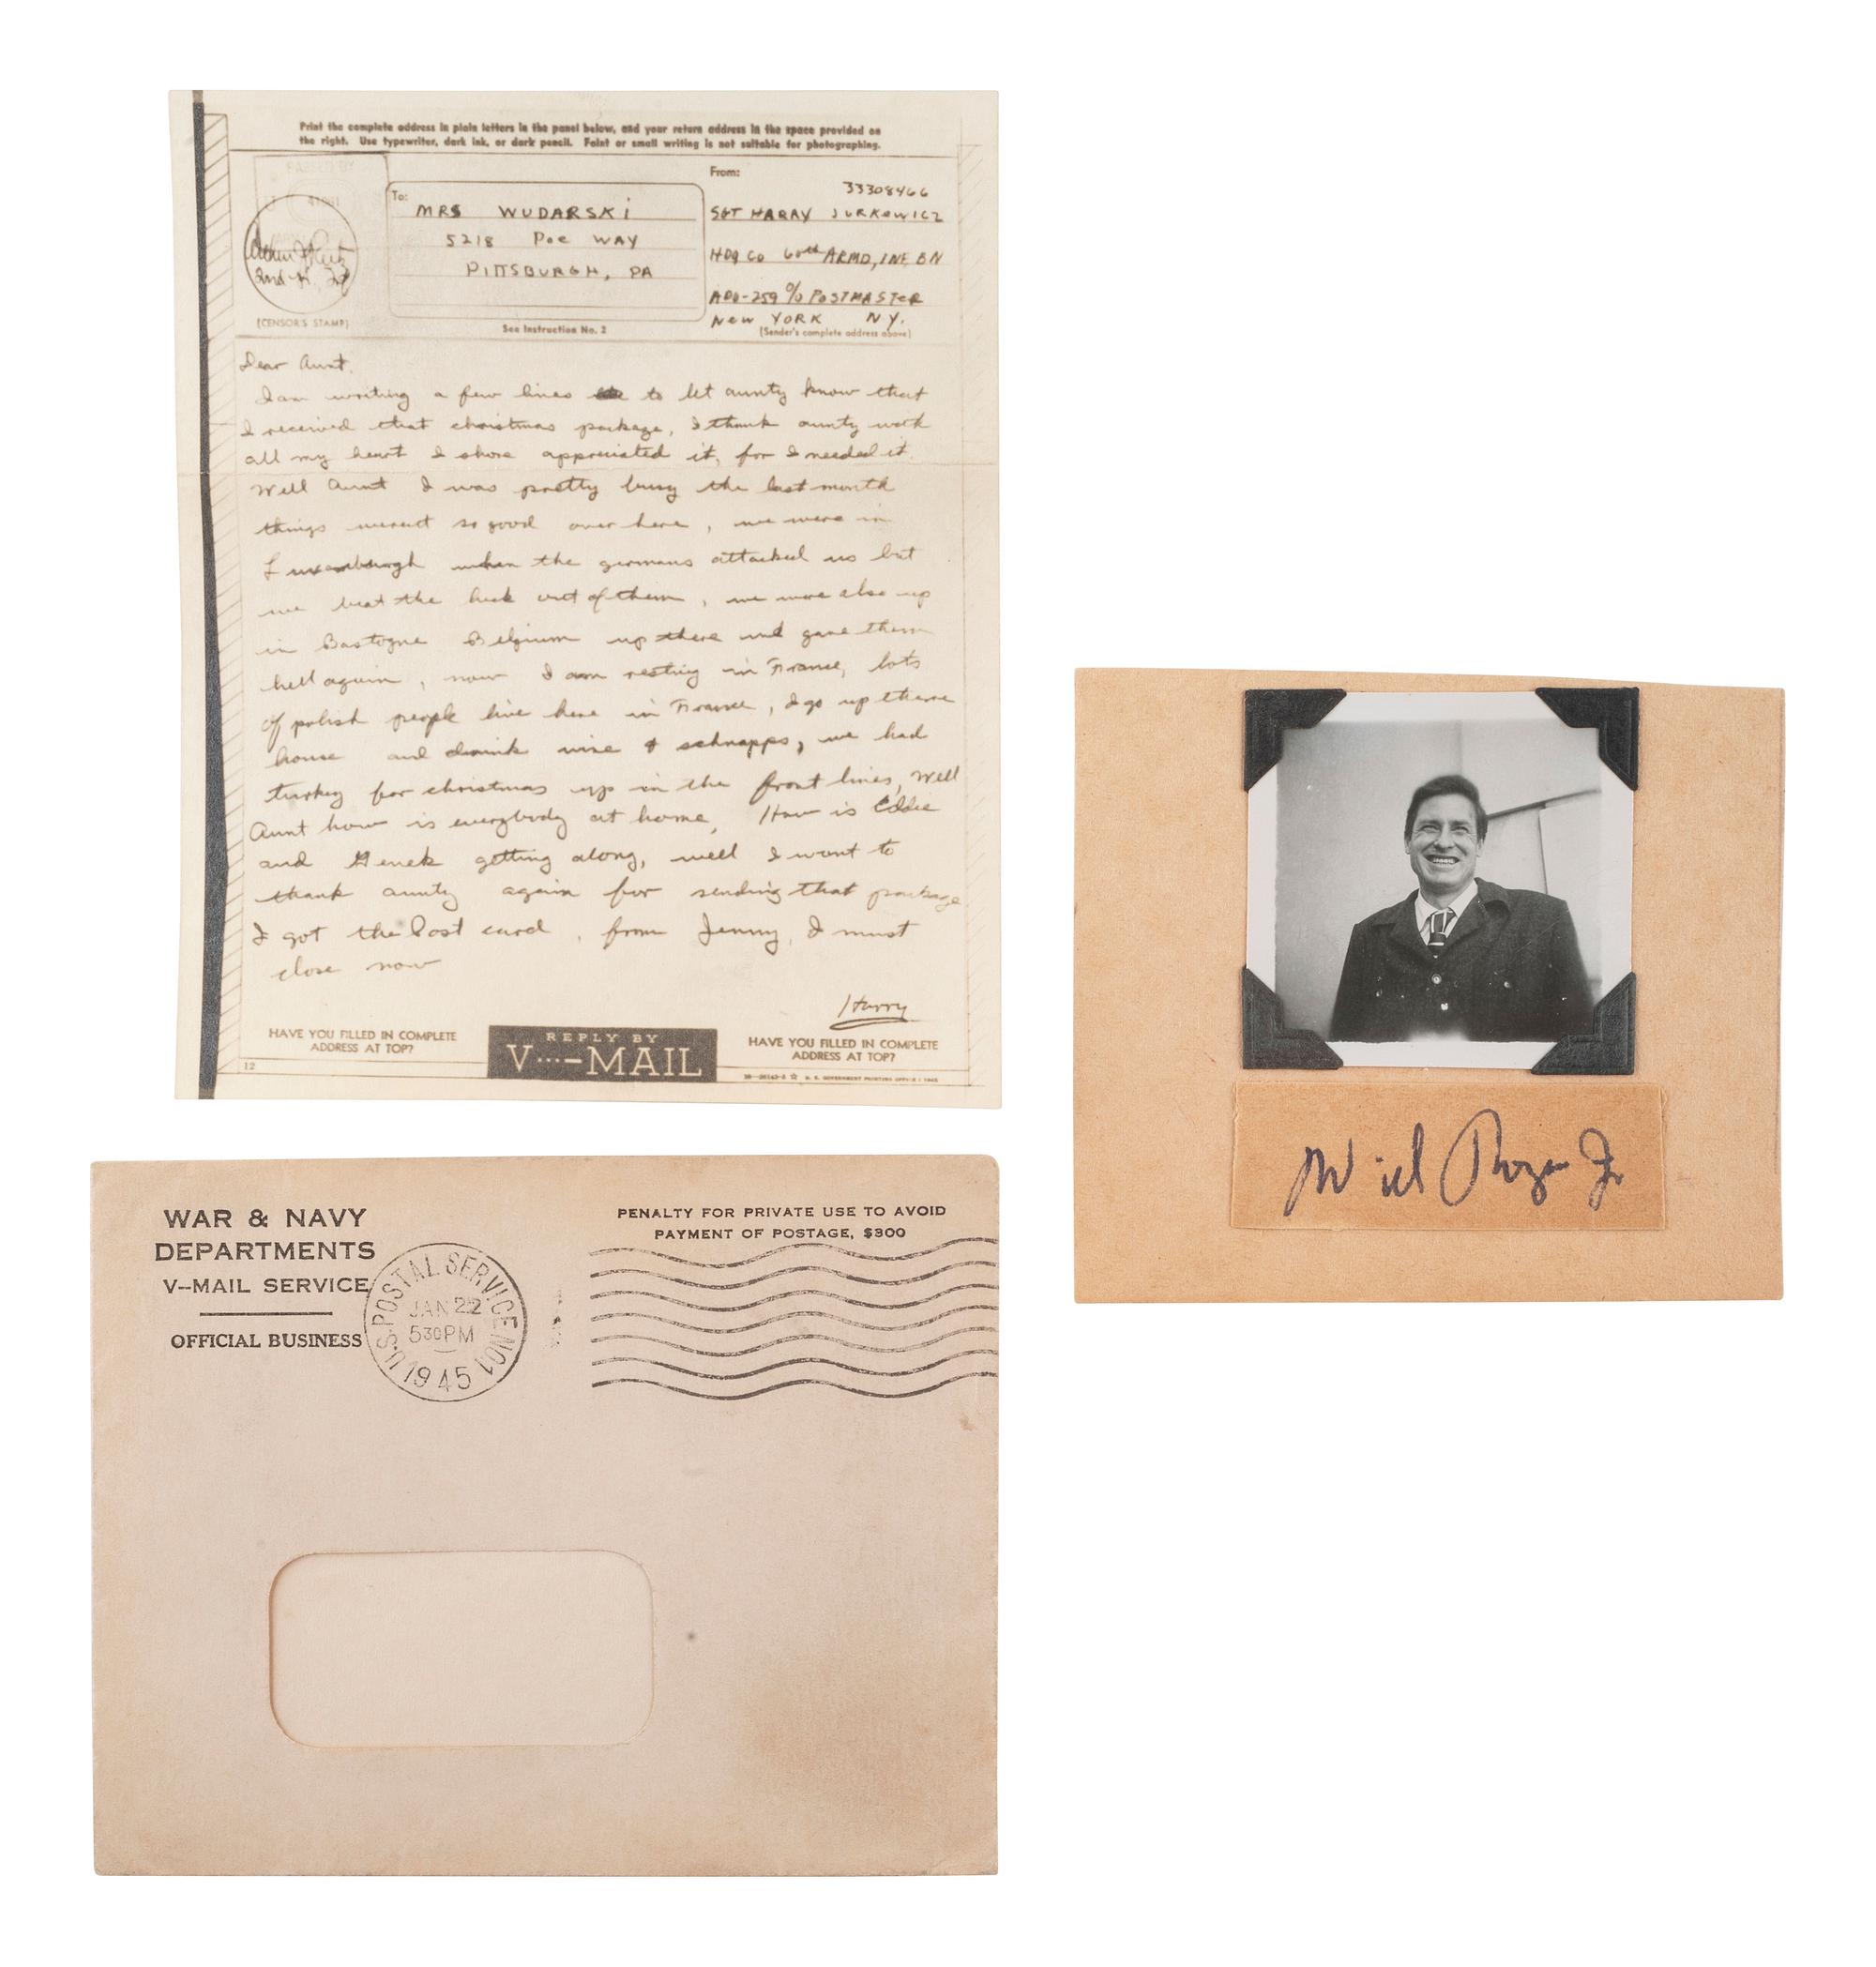 Print the complete address in plain letters in the panel below, and your return address in the space provided on
the right. Use typewriter, dark ink, or dark pencil. Faint or small writing is not suitable for photographing.
PASSED BY
2nd Lt.
(CENSOR'S STAMP)
To:
MRS WUDARSKi
5218 Poe WAY
PiTTSBURGH, PA
See Instruction No. 2
From:
33308466
SGT HARRY JURKOWICZ
HDQ CO 60th ARMD, INF, BN
APO-259 % POSTMASTeR
New YORK N.Y.
(Sender's complete address above)
Dear Aunt,
I am writing a few lines to let aunty know that
I received that christmas package, I thank aunty with
all my heart I shore appreciated it, for I needed it.
Well Aunt I was pretty busy the last month
things werent so good over here, we were in
Luxembourgh when the germans attacked us but
we beat the heck out of them, we were also up
in Bastogne Belgium up there and gave them
hell again, now I am resting in France, lots
of polish people live here in France, I go up there
house and drink wine & schnapps, we had
turkey for christmas up in the front lines, Well
Aunt how is everybody at home, How is Eddie
and Genek getting along, well I want to
thank aunty again for sending that package
I got the Post card, from Jenny, I must
close now
Harry
HAVE YOU FILLED IN COMPLETE
ADDRESS AT TOP?
REPLY BY
V···—MAIL
HAVE YOU FILLED IN COMPLETE
ADDRESS AT TOP?
12
U. S. GOVERNMENT PRINTING OFFICE
WAR & NAVY
DEPARTMENTS
V--MAIL SERVICE
OFFICIAL BUSINESS
U.S. POSTAL SERVICE NO1
JAN 22
530PM
1945
PENALTY FOR PRIVATE USE TO AVOID
PAYMENT OF POSTAGE, $300
Jr